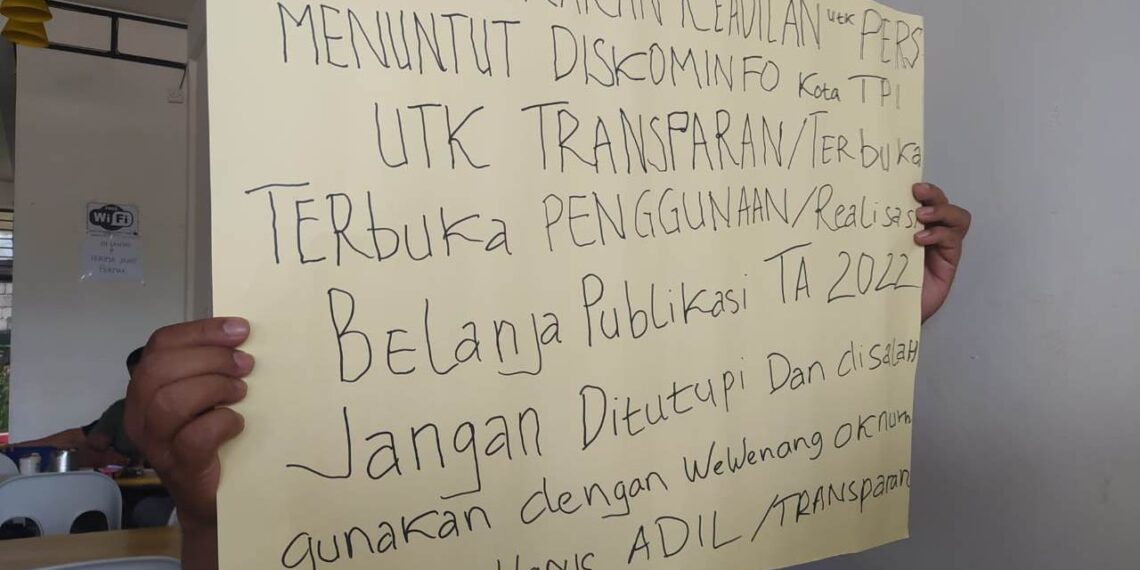 KEADILAN utk PERS
MENUNTUT DISKOMINFO Kota TPI
UTK TRANSPARAN/TERbuka
TERbuka PENGGUNAAN/Realisasi
BELanja Publikasi TA 2022
Jangan Ditutupi Dan disalah
gunakan dengan WeWenang oknum
Harus ADIL/TRANSparan
WiFi